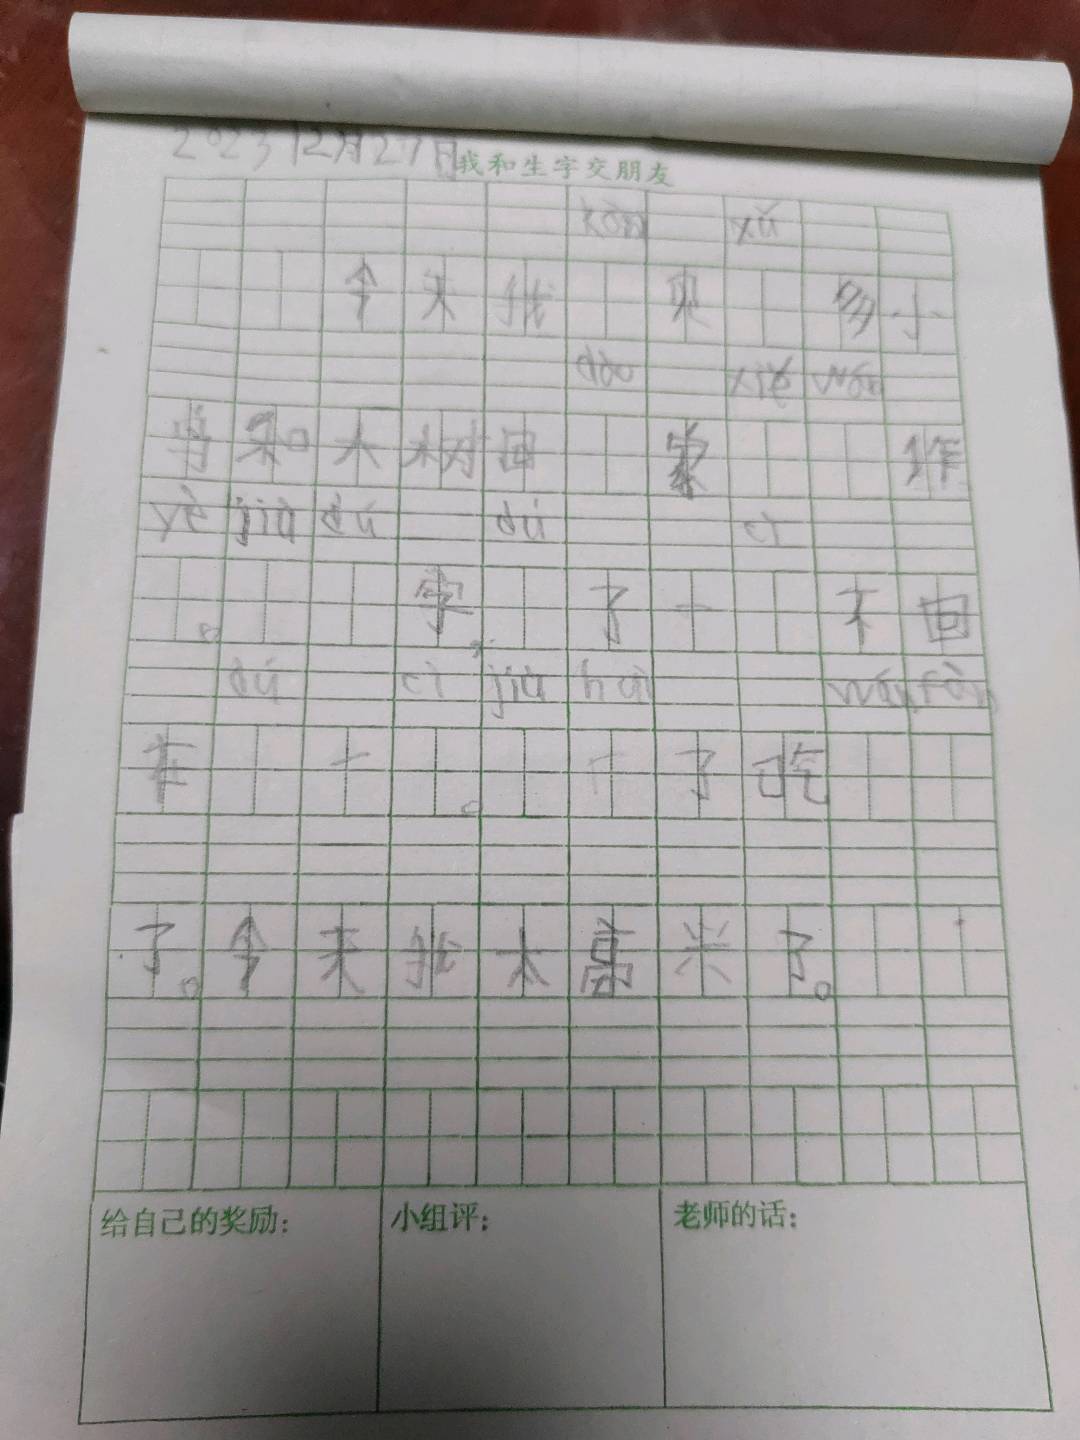 2023 12月27日 我和生字交朋友
kàn xǔ
今天我 见 多小
dào xiě wán
鸟和大树回 家 作
yè jiù dú dú cì
。 字 了十 不回
dú cì jiù huì wán fàn
在 十 。 了吃
了。今天我太高兴了。
给自己的奖励: 小组评: 老师的话: